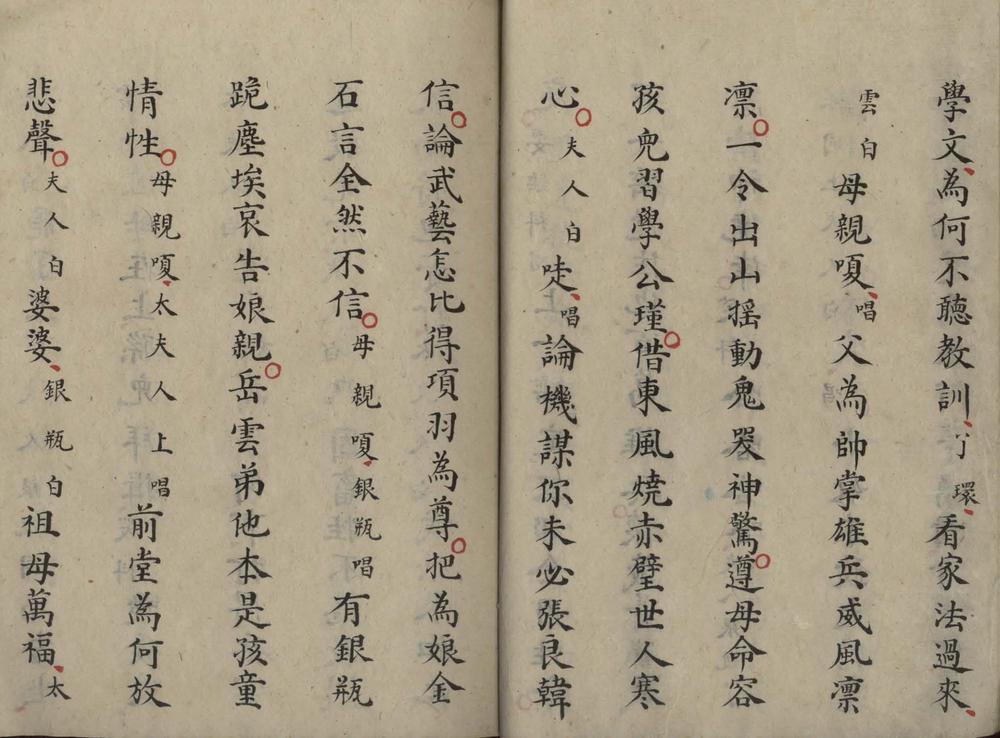 學文為何不聽教訓丫環看家法過來
雲白母親嗄唱父為帥掌雄兵威風凛
凛一令出山揺動鬼哭神驚遵母命容
孩兒習學公瑾借東風燒赤壁世人寒
心夫人白哇唱論機謀你未必張良韓
信論武藝怎比得項羽為尊把為娘金
石言全然不信母親嗄銀瓶唱有銀瓶
跪塵埃哀告娘親岳雲弟他本是孩童
情性母親嗄太夫人上唱前堂為何放
悲聲夫人白婆婆銀瓶白祖母萬福太